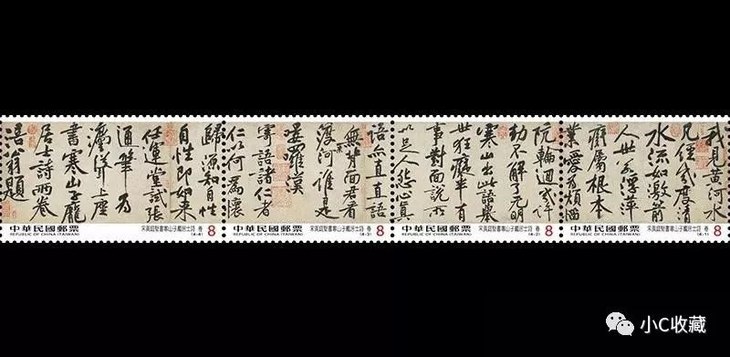 我見黃河水
凡經幾度清
水流如激箭
人世若浮萍
癡屬根本
業愛為煩惱
阬輪迴幾許
劫不解了元明
寒山出此語舉
世狂癡半有
事對面說所
以足人怨心真
語亦直直語
無背面君看
渡河誰是
嘍羅漢
寄語諸仁者
仁以何為懷
歸源知自性
自性即如來
任運堂試張
通筆為
灋聳上座
書寒山子龐
居士詩兩卷
涪翁題
中華民國郵票 宋黃庭堅書寒山子龐居士詩 卷
REPUBLIC OF CHINA (TAIWAN) (4-4) 8
中華民國郵票 宋黃庭堅書寒山子龐居士詩 卷
REPUBLIC OF CHINA (TAIWAN) (4-3) 8
中華民國郵票 宋黃庭堅書寒山子龐居士詩 卷
REPUBLIC OF CHINA (TAIWAN) (4-2) 8
中華民國郵票 宋黃庭堅書寒山子龐居士詩 卷
REPUBLIC OF CHINA (TAIWAN) (4-1) 8
小C收藏